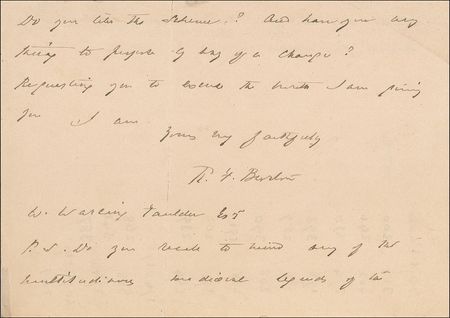 Do you like the scheme? And have you any
thing to propose by way of a change?
Requesting you to excuse the trouble I am giving
you I am
Yours very faithfully
R. F. Burton
W. Waring Faulder Esq
P.S. Do you recall to mind any of the
multitudinous mediæval legends of the